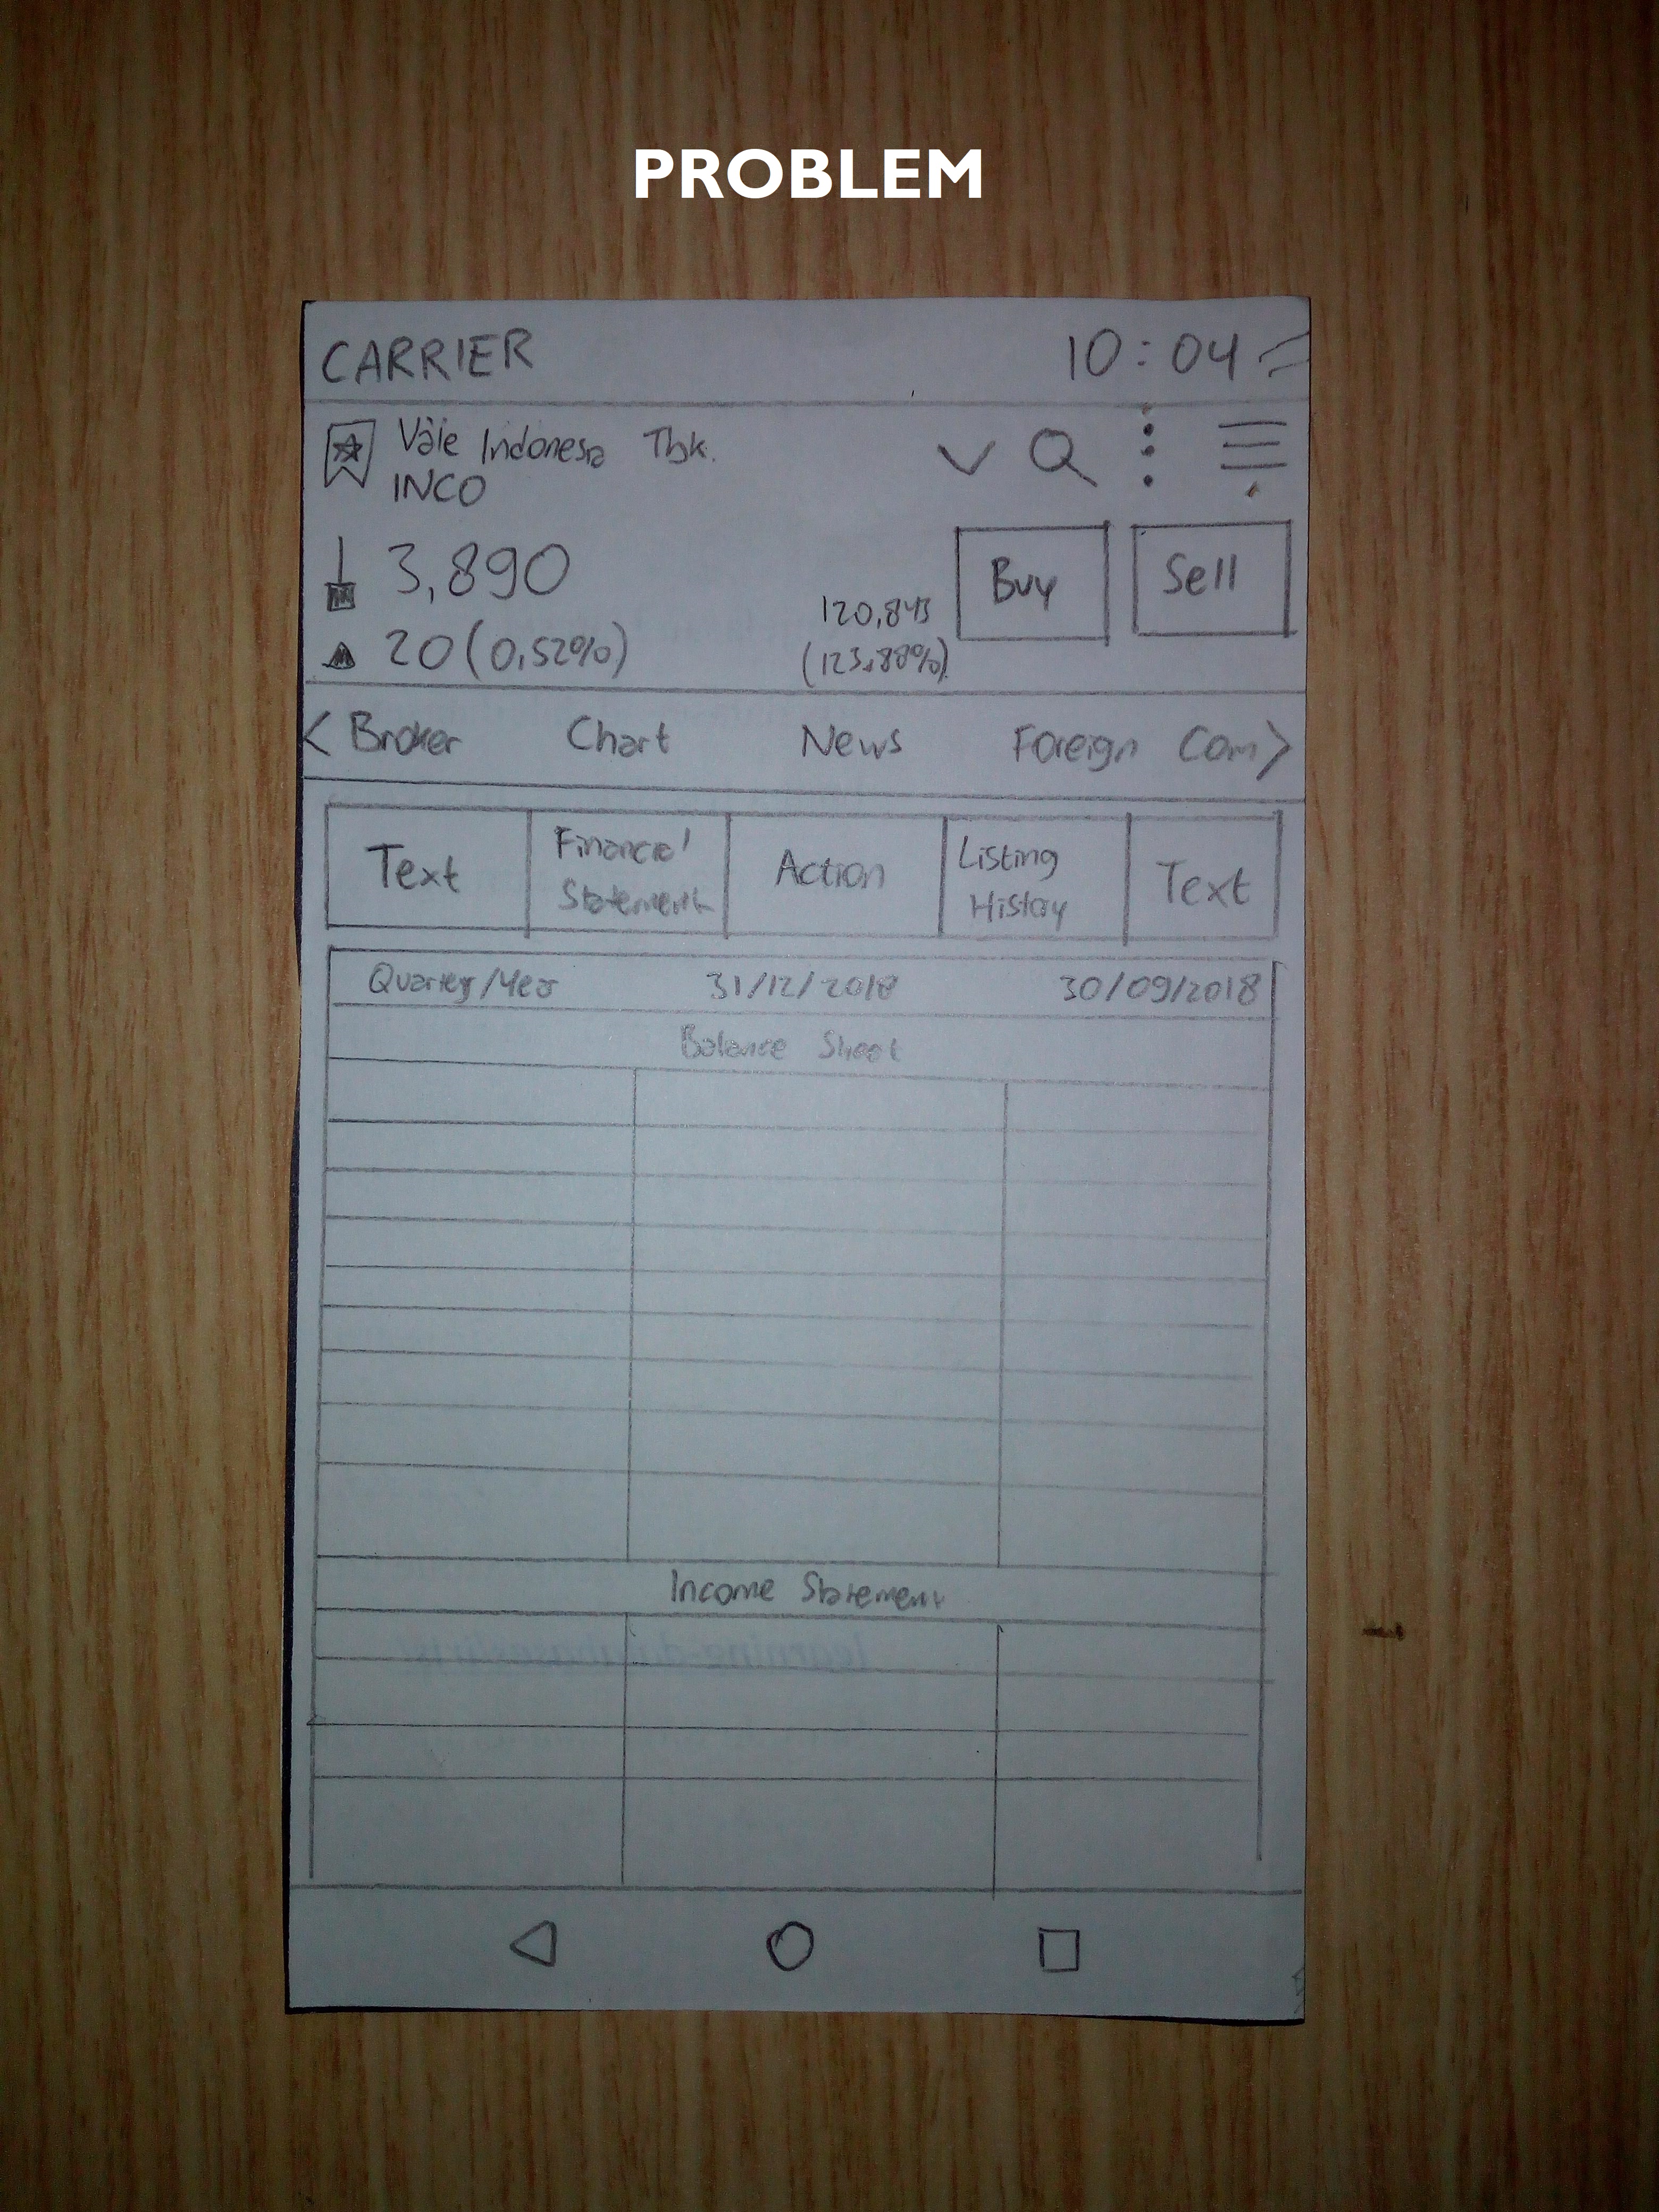 PROBLEM
CARRIER 10:04
Vale Indonesia Tbk.
INCO
3,890
Buy
Sell
20 (0,52%)
120,843
(123,88%)
< Broker Chart News Foreign Com >
Text
Financial
Statement
Action
Listing
History
Text
31/12/2018 30/09/2018
Balance Sheet
Income Statement